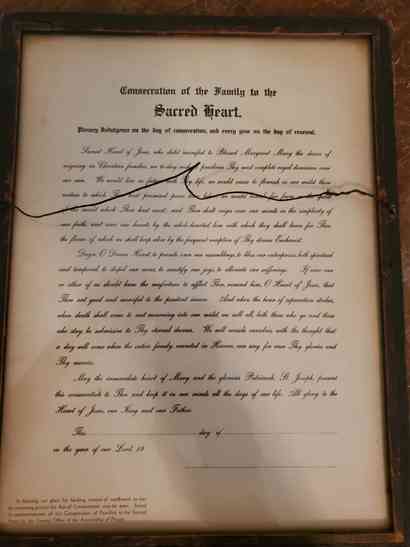 Consecration of the Family to the
Sacred Heart.
Plenary Indulgence on the day of consecration, and every year on the day of renewal.
Sacred Heart of Jesus, who didst manifest to Blessed Margaret Mary the desire of
reigning in Christian families, we to-day proclaim Thy most complete regal dominion over
our own. We would live in future with Thy life, we would cause to flourish in our midst those
virtues to which Thou hast promised peace here below, we would banish far from us the spirit
of the world which Thou hast cursed; and Thou shalt reign over our minds in the simplicity of
our faith, and over our hearts by the whole-hearted love with which they shall burn for Thee,
the flame of which we shall keep alive by the frequent reception of Thy divine Eucharist.
Deign, O Divine Heart, to preside over our assemblings, to bless our enterprises, both spiritual
and temporal, to dispel our cares, to sanctify our joys, to alleviate our sufferings. If ever one
or other of us should have the misfortune to afflict Thee, remind him, O Heart of Jesus, that
Thou art good and merciful to the penitent sinner. And when the hour of separation strikes,
when death shall come to cast mourning into our midst, we will all, both those who go and those
who stay, be submissive to Thy eternal decrees. We will console ourselves with the thought that
a day will come when the entire family, reunited in Heaven, can sing for ever Thy glories and
Thy mercies.
May the immaculate heart of Mary and the glorious Patriarch, St. Joseph, present
this consecration to Thee, and keep it in our minds all the days of our life. All glory to the
Heart of Jesus, our King and our Father.
This day of
in the year of our Lord, 19